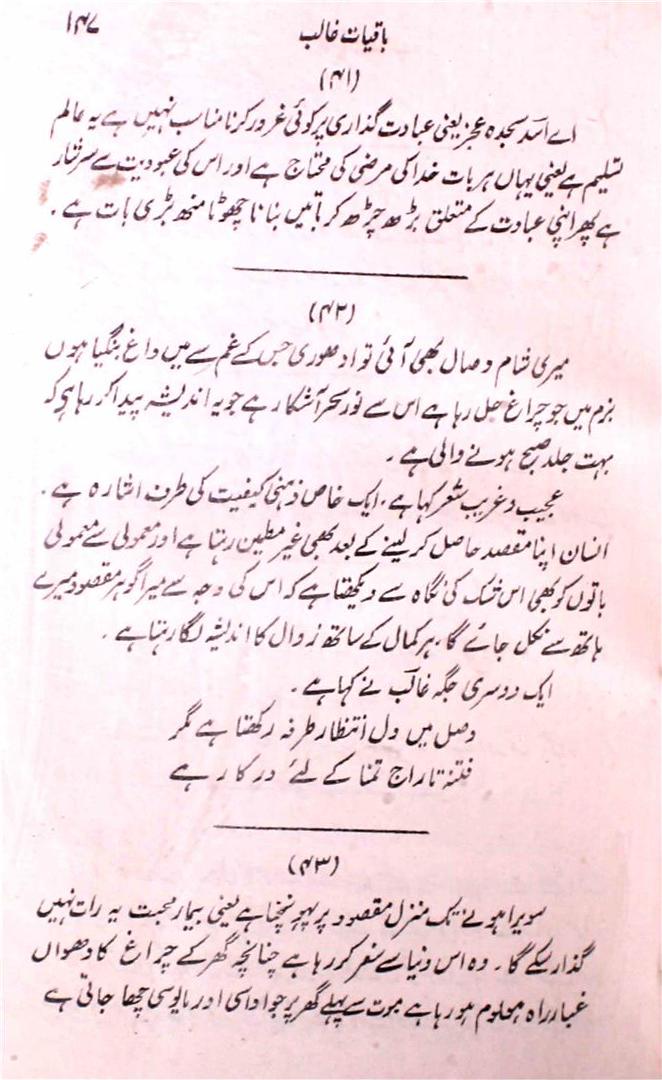 باقیات غالب ۱۴۷
(۴۱)
اے اسدؔ سجدہ عجز یعنی عبادت گذاری پر کوئی غرور کرنا مناسب نہیں ہے یہ عالم
تسلیم ہے یعنی یہاں ہر بات خدا کی مرضی کی محتاج ہے اور اس کی عبودیت سے سرشار
ہے پھر اپنی عبادت کے متعلق بڑھ چڑھ کر باتیں بنانا چھوٹا منھ بڑی بات ہے ۔
(۴۲)
میری شام وصال بھی آئی تو ادھوری جس کے غم سے میں داغ بنگیا ہوں
بزم میں جو چراغ جل رہا ہے اس سے نور سحر آشکار ہے جو یہ اندیشہ پیدا کر رہا ہیکہ
بہت جلد صبح ہونے والی ہے ۔
عجیب و غریب شعر کہا ہے . ایک خاص ذہنی کیفیت کی طرف اشارہ ہے ۔
انسان اپنا مقصد حاصل کر لینے کے بعد بھی غیر مطمین رہتا ہے اور معمولی سے معمولی
باتوں کو بھی اس شک کی نگاہ سے دیکھتا ہے کہ اس کی وجہ سے میرا گوہر مقصود میرے
ہاتھ سے نکل جائے گا . ہر کمال کے ساتھ زوال کا اندیشہ لگا رہتا ہے ۔
ایک دوسری جگہ غالبؔ نے کہا ہے ۔
وصل میں دل انتظار طرفہ رکھتا ہے مگر
فتنہ تاراج تمنا کے لئے درکار ہے
(۴۳)
سویرا ہونے تک منزل مقصود پر پہونچنا ہے یعنی بیمار محبت یہ رات نہیں
گذار سکے گا ۔ وہ اس دنیا سے سفر کر رہا ہے چنانچہ گھر کے چراغ کا دھواں
غبار راہ معلوم ہو رہا ہے موت سے پہلے گھر پر جو اداسی اور مایوسی چھا جاتی ہے